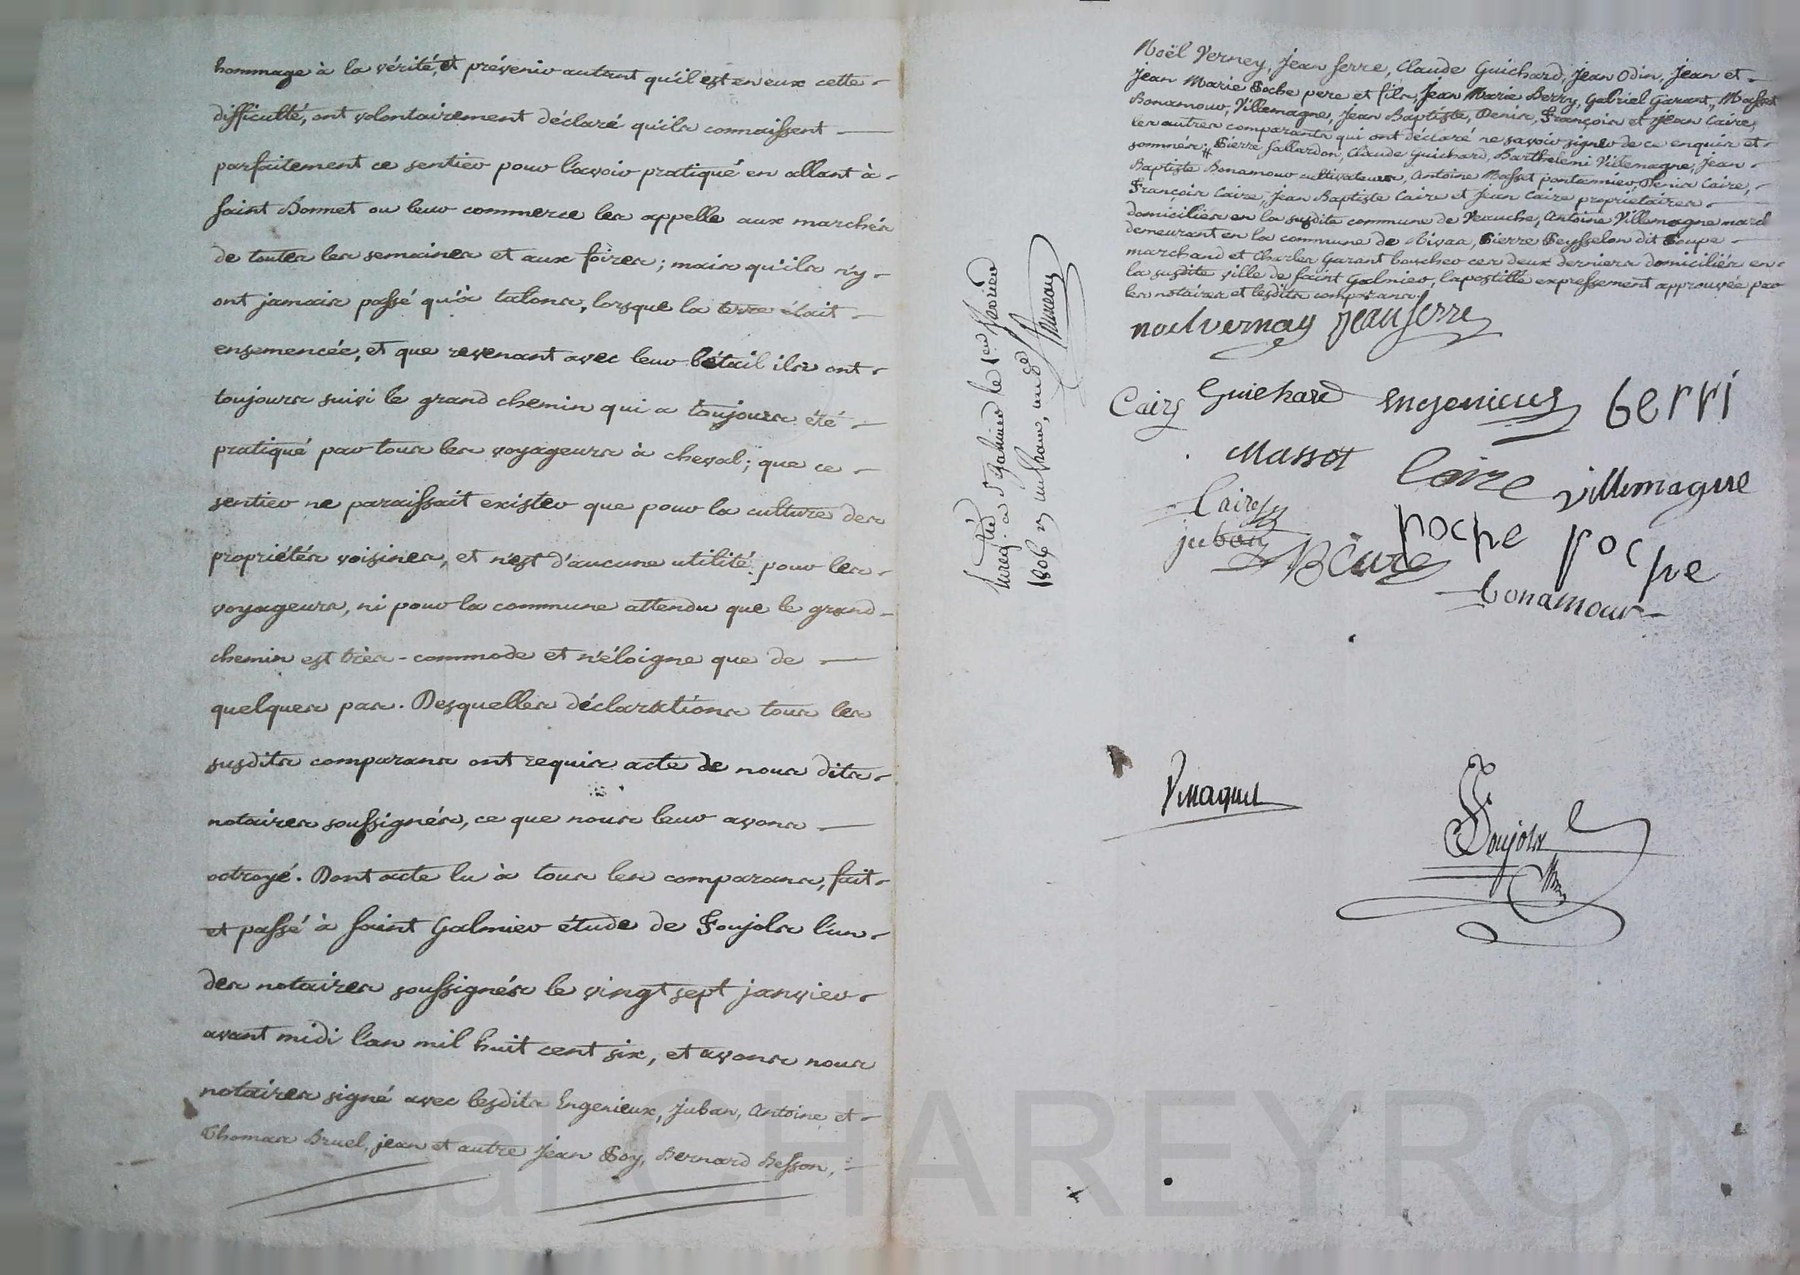 hommage à la vérité, et prévenir autant qu'il est en eux cette
difficulté, ont volontairement déclaré qu'ils connaissent
parfaitement ce sentier pour l'avoir pratiqué en allant à
saint Bonnet ou leur commerce les appelle aux marchés
de toutes les semaines et aux foires ; mais qu'ils n'y
ont jamais passé qu'à talons, lorsque la terre était
ensemencée, et que revenant avec leur bétail ils ont
toujours suivi le grand chemin qui a toujours été
pratiqué par tous les voyageurs à cheval ; que ce
sentier ne paraissait exister que pour la culture des
propriétés voisines, et n'est d'aucune utilité pour les
voyageurs, ni pour la commune attendu que le grand
chemin est très-commode et n'éloigne que de
quelques pas. Desquelles déclarations tous les
susdits comparans ont requis acte de nous dits
notaires soussignés, ce que nous leur avons
octroyé. Dont acte lu à tous les comparans, fait
et passé à saint Galmier étude de Poujols l'un
des notaires soussignés le vingt sept janvier
avant midi l'an mil huit cent six, et avons nous
notaires signé avec lesdits Engenieux, Juban, Antoine et
Thomas Bruel, jean et autre Jean Poy, Bernard Besson,
Enreg. à St Galmier le 1er février
1806
Noël Verney, Jean serre, Claude Guichard, Jean Odin, Jean et
Jean Marie Poche pere et fils, Jean Marie Berry, Gabriel Garant, Masset
Bonamour, Villemagne, Jean Baptiste, Denis, François et Jean Caire,
les autres comparants qui ont déclaré ne savoir signer de ce enquis et
sommés # Pierre Gallardon, Claude Guichard, Barthelemi Villemagne, Jean
Baptiste Bonamour cultivateurs, Antoine Masset pontamier, Denis Caire,
François Caire, Jean Baptiste Caire et Jean Caire propriétaires
domiciliés en la susdite commune de Veauche, Antoine Villemagne mard
demeurant en la commune de Rivas, Pierre Peysselon dit Poupe
marchand et Charles Garant boucher ces deux derniers domiciliés en
la susdite ville de saint Galmier, l'apostille expressement approuvée par
les notaires et lesdits comparans.
noel vernay jean serre
Caire Guichard Engenieux berri
Massot Caire villemagne
Caire
juban poche poche
bonamour
Poujols
CHAREYRON